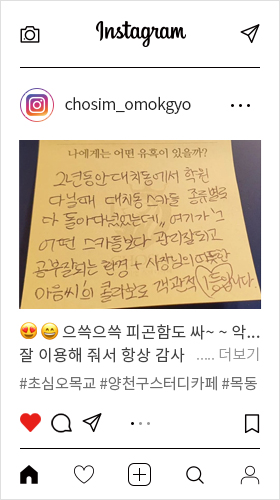 Instagram
chosim_omokgyo
나에게는 어떤 유혹이 있을까?
2년동안 대치동에서 학원
다닐때 대치동 스카들 종류별로
다 돌아다녔었는데,, 여기가 그
어떤 스카들보다 관리잘되고
공부잘되는 환경 + 사장님의 따뜻한
마음씨의 콜라보로 객관적 1등입니다.
😍😄 으쓱으쓱 피곤함도 싸~ ~ 악...
잘 이용해 줘서 항상 감사 ..... 더보기
#초심오목교 #양천구스터디카페 #목동